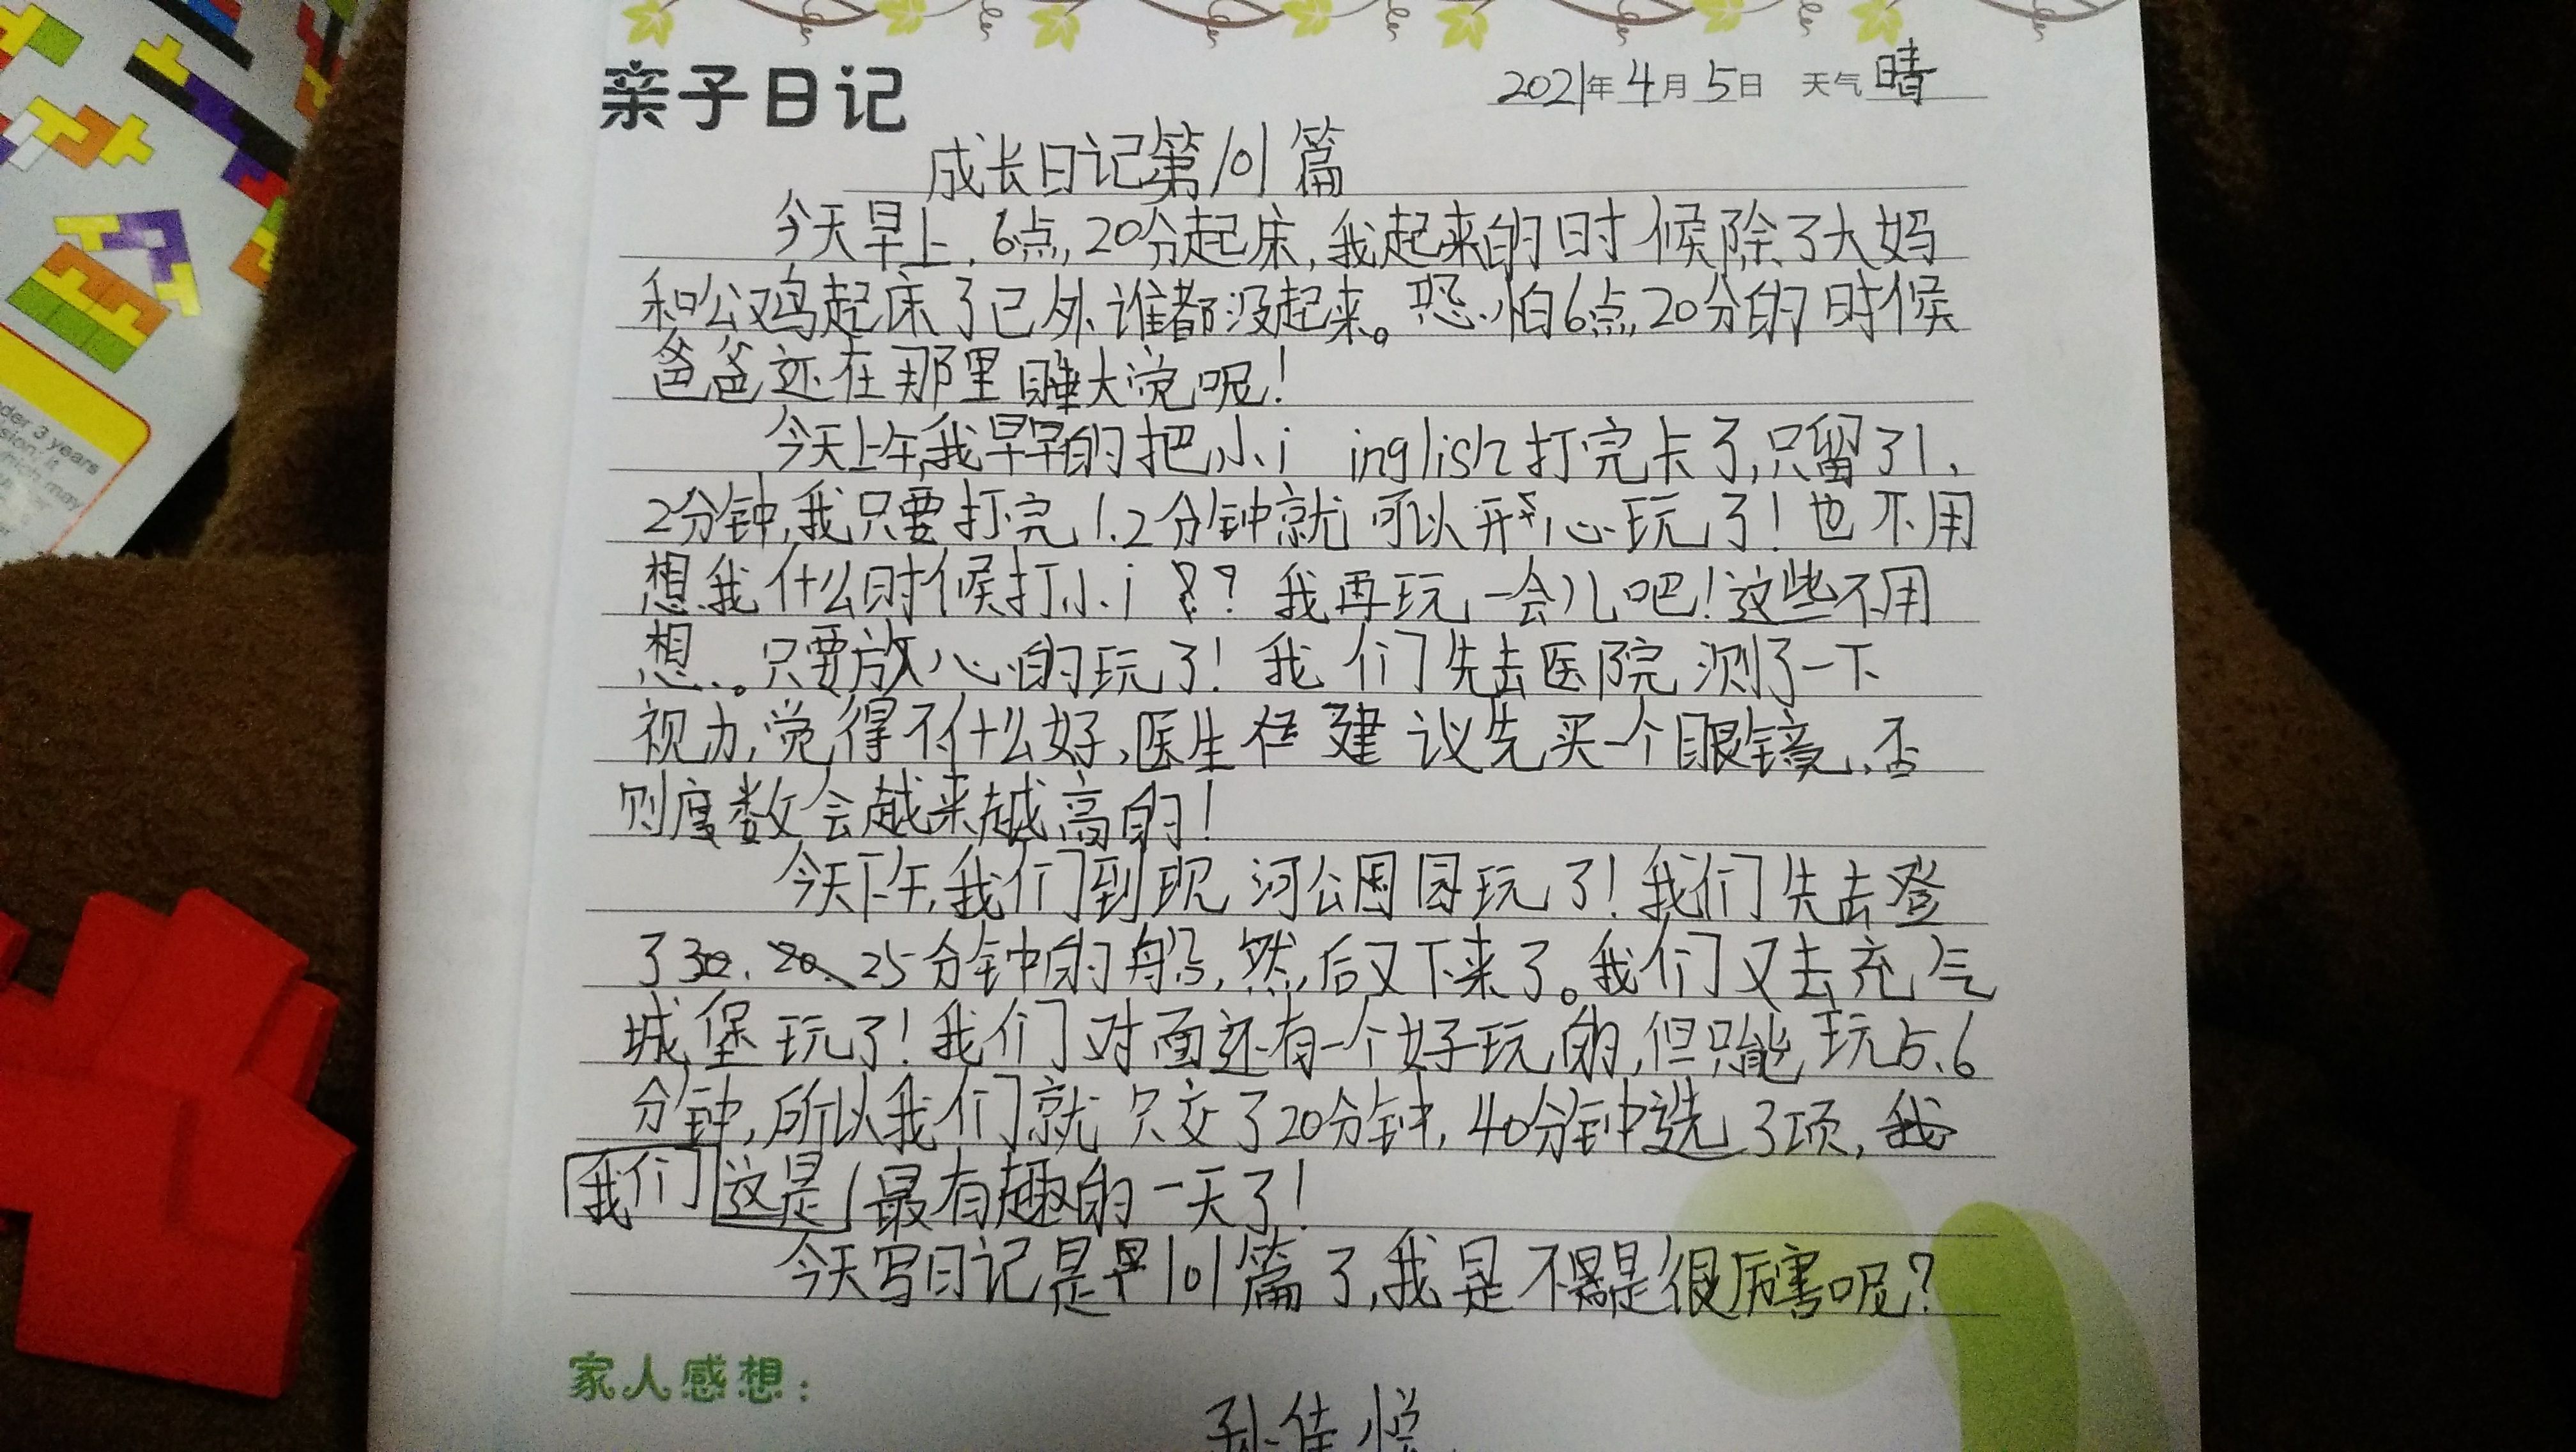 亲子日记
2021年4月5日 天气晴
成长日记第101篇
今天早上,6点,20分起床,我起来的时候除了大妈
和公鸡起床了已外谁都没起来。恐怕6点,20分的时候
爸爸还在那里睡大觉呢!
今天上午,我早早的把小i inglish打完卡了,只留了1、
2分钟,我只要打完1.2分钟就可以开心玩了!也不用
想我什么时候打小i??我再玩一会儿吧!这些不用
想。只要放心的玩了!我们先去医院测了一下
视力,觉得不什么好,医生建议先买一个眼镜,否
则度数会越来越高的!
今天下午,我们到现河公园玩了!我们先去登
了25分钟的船,然后又下来了。我们又去充气
城堡玩了!我们对面还有一个好玩的,但只能玩5、6
分钟,所以我们就只交了20分钟,40分钟选了项,
我们这是最有趣的一天了!
今天写日记是早101篇了,我是不是很厉害呢?
家人感想:
孙佳悦
der 3 years
sion, it
which may